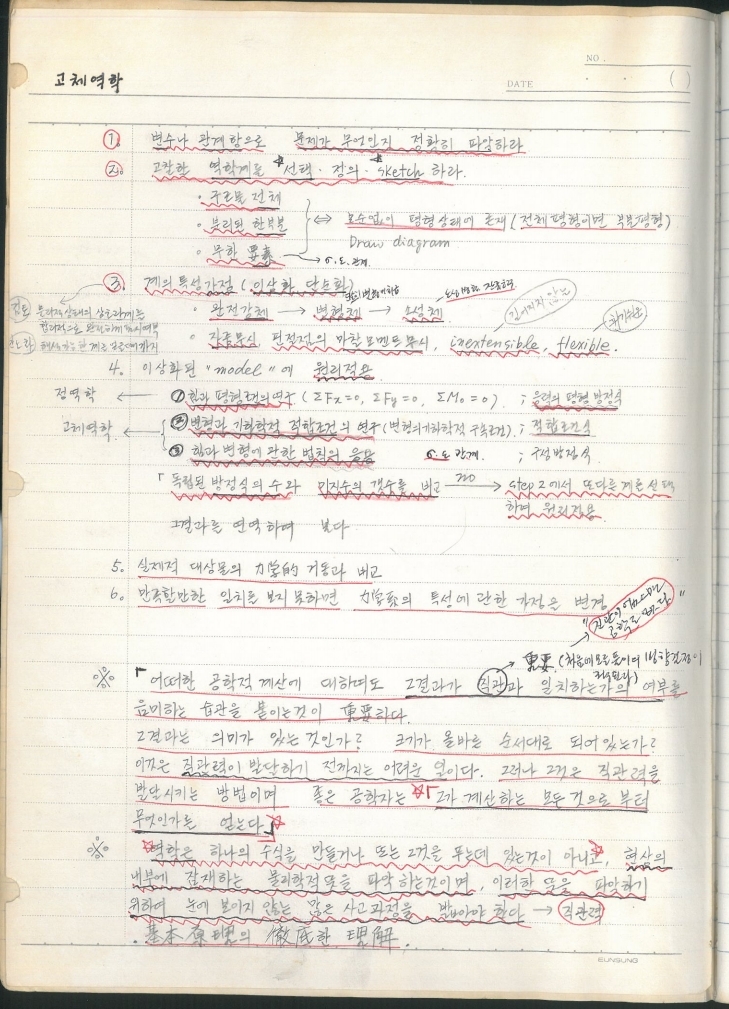 NO.
고체역학
DATE ( . )
1. 변수나 관계항으로 문제가 무엇인지 정확히 파악하라
2. 고찰한 역학계를 선택 · 정의 · sketch 하라.
· 구조물 전체
· 분리된 한부분 ⇔ 모순없이 평형상태에 존재 (전체평형이면 부분평형)
· 무한 要素 Draw diagram
σ.ε.관계.
3. 계의 특성가정 (이상화 단순화)
· 완전강체 → 변형체 → 소성체
길이변하지 않는
· 자중무시 핀점점의 마찰모멘트무시, inextensible, flexible.
4. 이상화된 "model"에 원리적용.
정역학 ← ① 힘과 평형조건의 연구 (ΣFx=0, ΣFy=0, ΣMo=0) ; 응력의 평형방정식
고체역학 ← ② 변형과 기하학적 적합조건의 연구 (변형의 기하학적 구속조건). ; 적합조건식
③ 힘과 변형에 관한 법칙의 응용 σ.ε관계. ; 구성방정식.
「독립된 방정식의 수와 미지수의 갯수를 비교 no → step 2에서 또다른 계를 선택
하여 원리적용
그결과를 연역하여 본다
5. 실제적 대상물의 力学的 거동과 비교
6. 만족할만한 일치를 보지 못하면 力学系의 특성에 관한 가정을 변경
"직관이 없으면 공학도 없다"
重要 (처음에 모르듯이 방향결정이
※ 「어떠한 공학적 계산에 대하여도 그결과가 직관과 일치하는가의 여부를
음미하는 습관을 붙이는것이 重要하다.
그결과는 의미가 있는것인가? 크기가 올바른 순서대로 되어있는가?
이것은 직관력이 발달하기 전까지는 어려운 일이다. 그러나 그것은 직관력을
발달시키는 방법이며 좋은 공학자는 ☆「그가 계산하는 모든 것으로 부터
무엇인가를 얻는다」☆
※ ☆역학은 하나의 수식을 만들거나 또는 그것을 푸는데 있는것이 아니고☆, 현상의
내부에 잠재하는 물리학적 뜻을 파악하는것이며, 이러한 뜻을 파악하기
위하여 눈에 보이지 않는 많은 사고과정을 밟아야 한다 → 직관력
. 基本原理의 徹底한 理解.
EUNSUNG